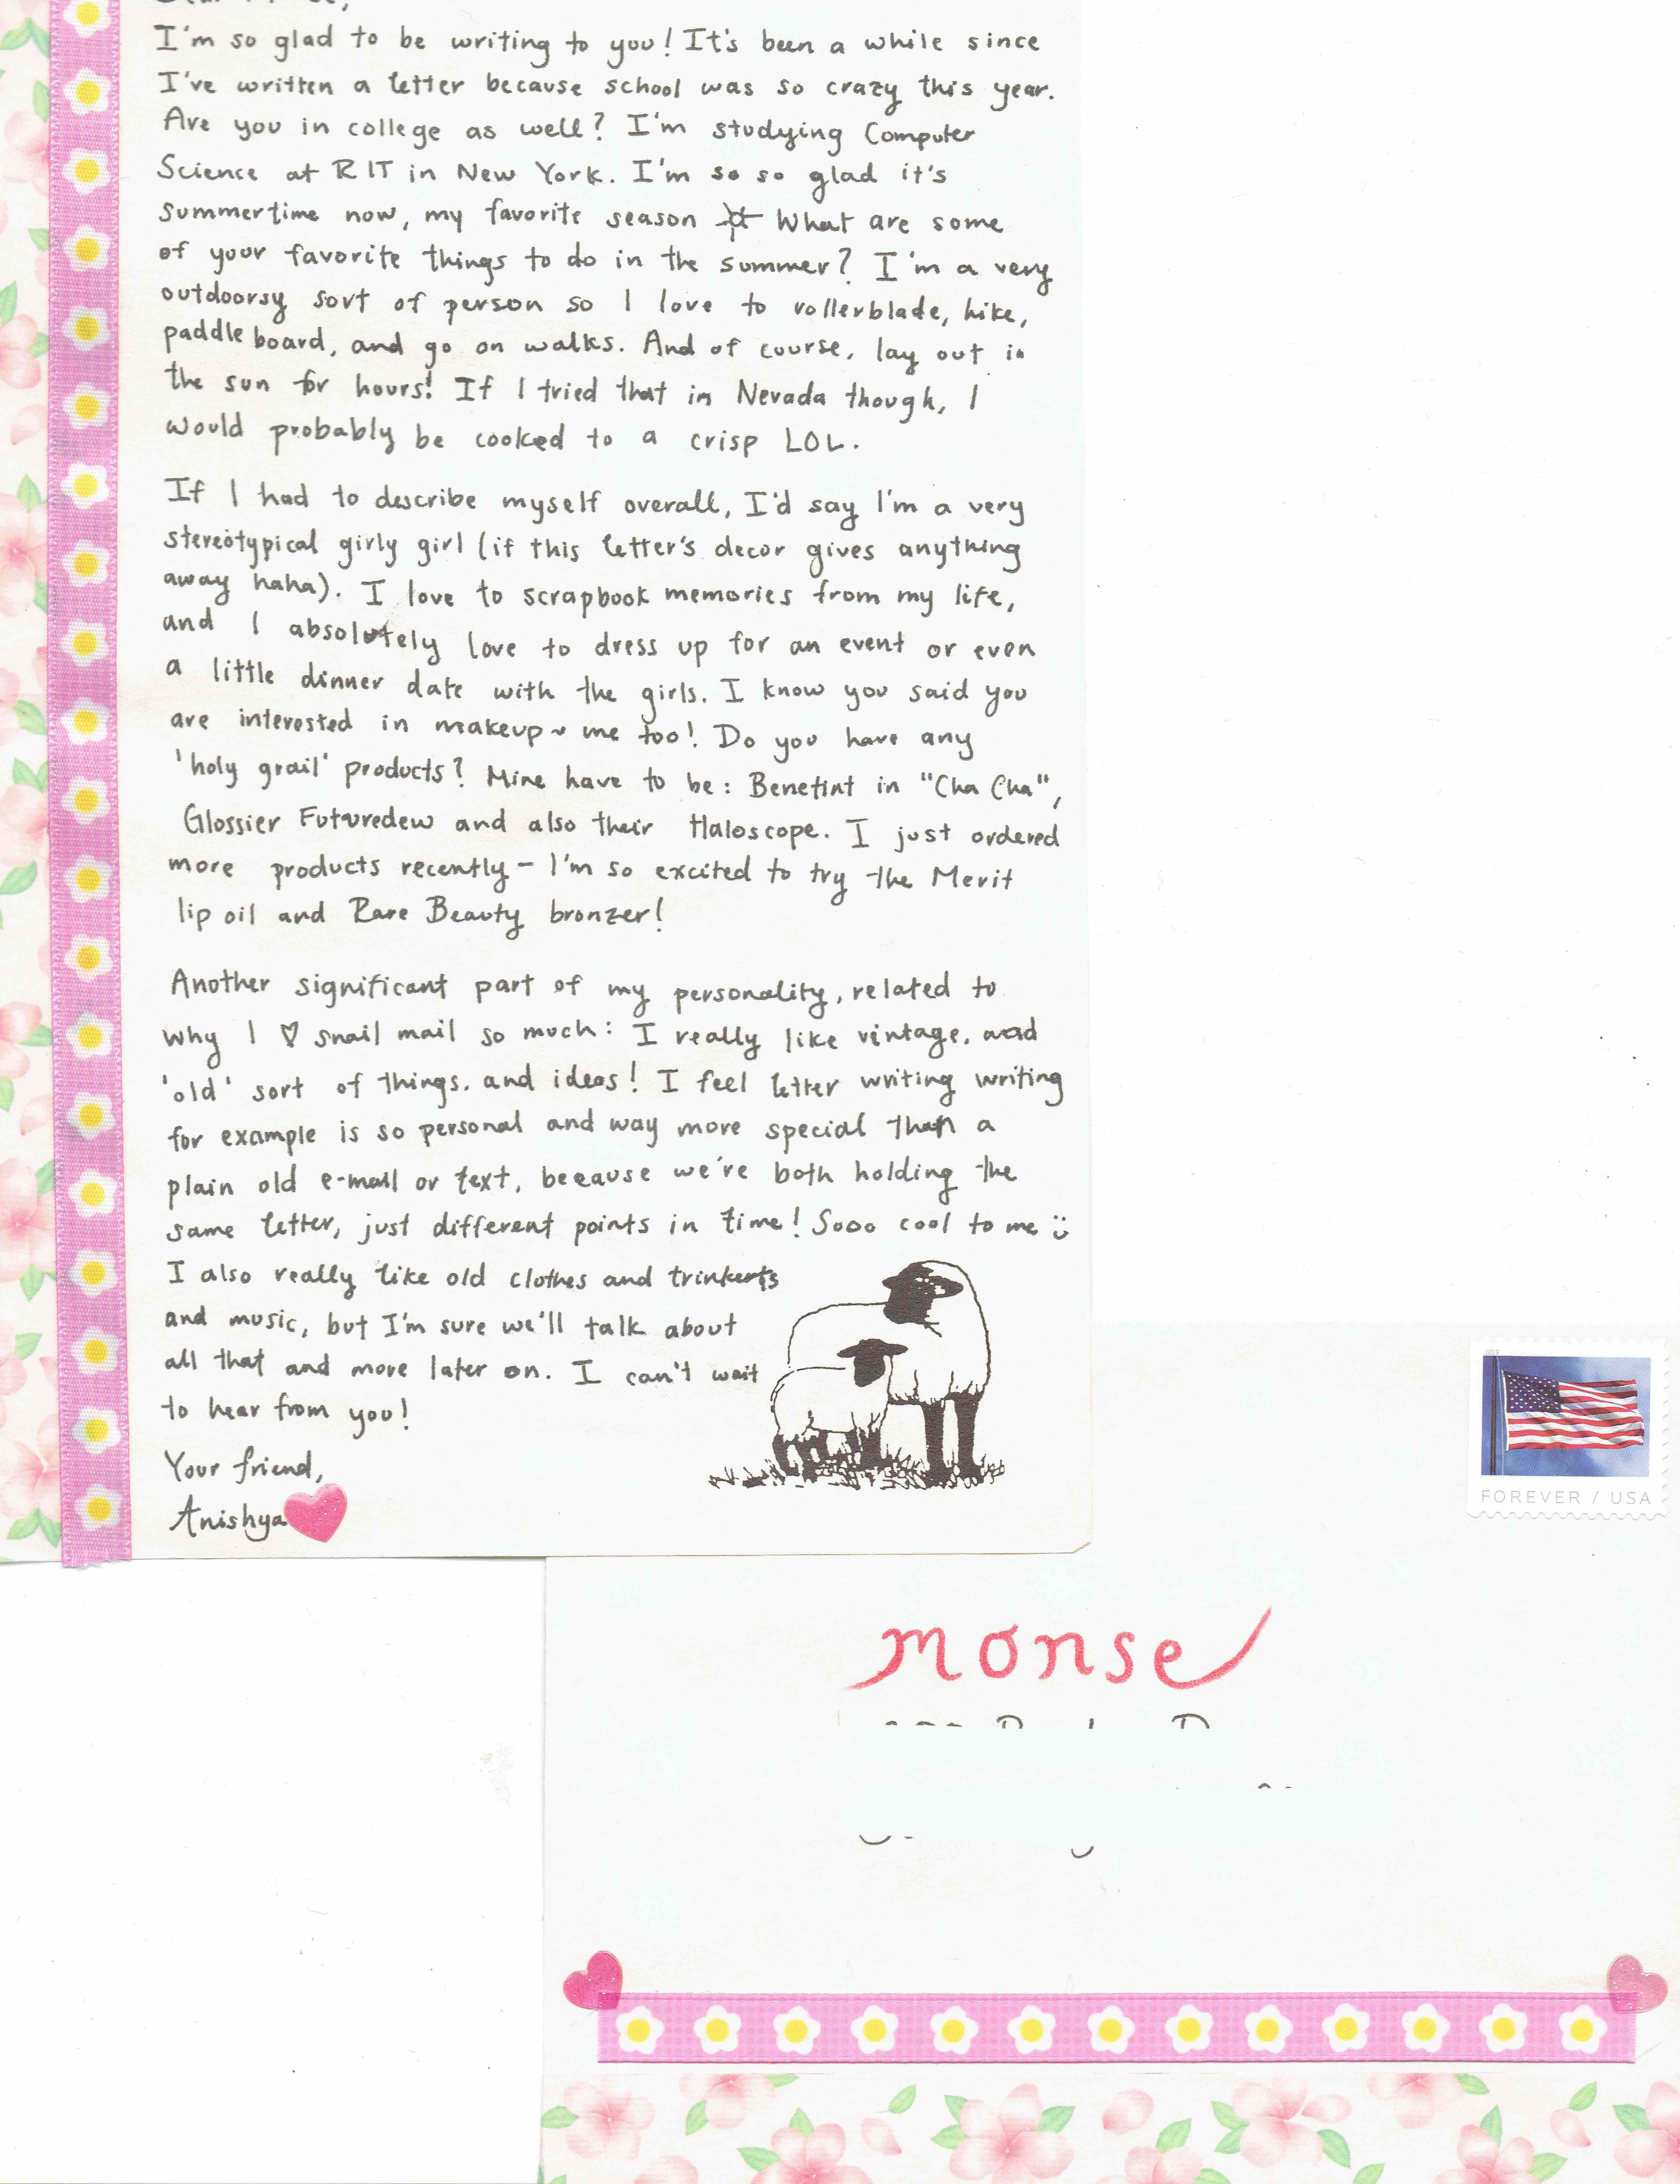 I'm so glad to be writing to you! It's been a while since
I've written a letter because school was so crazy this year.
Are you in college as well? I'm studying Computer
Science at RIT in New York. I'm so so glad it's
summertime now, my favorite season ☼ What are some
of your favorite things to do in the summer? I'm a very
outdoorsy sort of person so I love to rollerblade, hike,
paddle board, and go on walks. And of course, lay out in
the sun for hours! If I tried that in Nevada though, I
would probably be cooked to a crisp LOL.
If I had to describe myself overall, I'd say I'm a very
stereotypical girly girl (if this letter's decor gives anything
away haha). I love to scrapbook memories from my life,
and I absolutely love to dress up for an event or even
a little dinner date with the girls. I know you said you
are interested in makeup ~ me too! Do you have any
'holy grail' products? Mine have to be: Benetint in "Cha Cha",
Glossier Futuredew and also their Haloscope. I just ordered
more products recently - I'm so excited to try the Merit
lip oil and Rare Beauty bronzer!
Another significant part of my personality, related to
why I ♡ snail mail so much: I really like vintage, and
'old' sort of things, and ideas! I feel letter writing writing
for example is so personal and way more special than a
plain old e-mail or text, because we're both holding the
same letter, just different points in time! Sooo cool to me ü
I also really like old clothes and trinkerts
and music, but I'm sure we'll talk about
all that and more later on. I can't wait
to hear from you!
Your friend,
Anishya
FOREVER / USA
monse